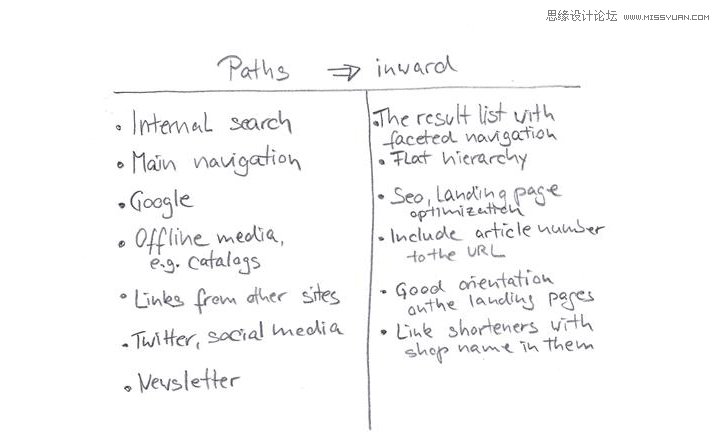 思缘设计论坛 WWW.MISSYUAN.COM
Paths ⇒ inward
• Internal search
• Main navigation
• Google
• Offline media,
e.g. catalogs
• Links from other sites
• Twitter, social media
• Newsletter
• The result list with
faceted navigation
• Flat hierarchy
• Seo, Landing page
optimization
• Include article number
to the URL
• Good orientation
on the landing pages
• Link shorteners with
shop name in them